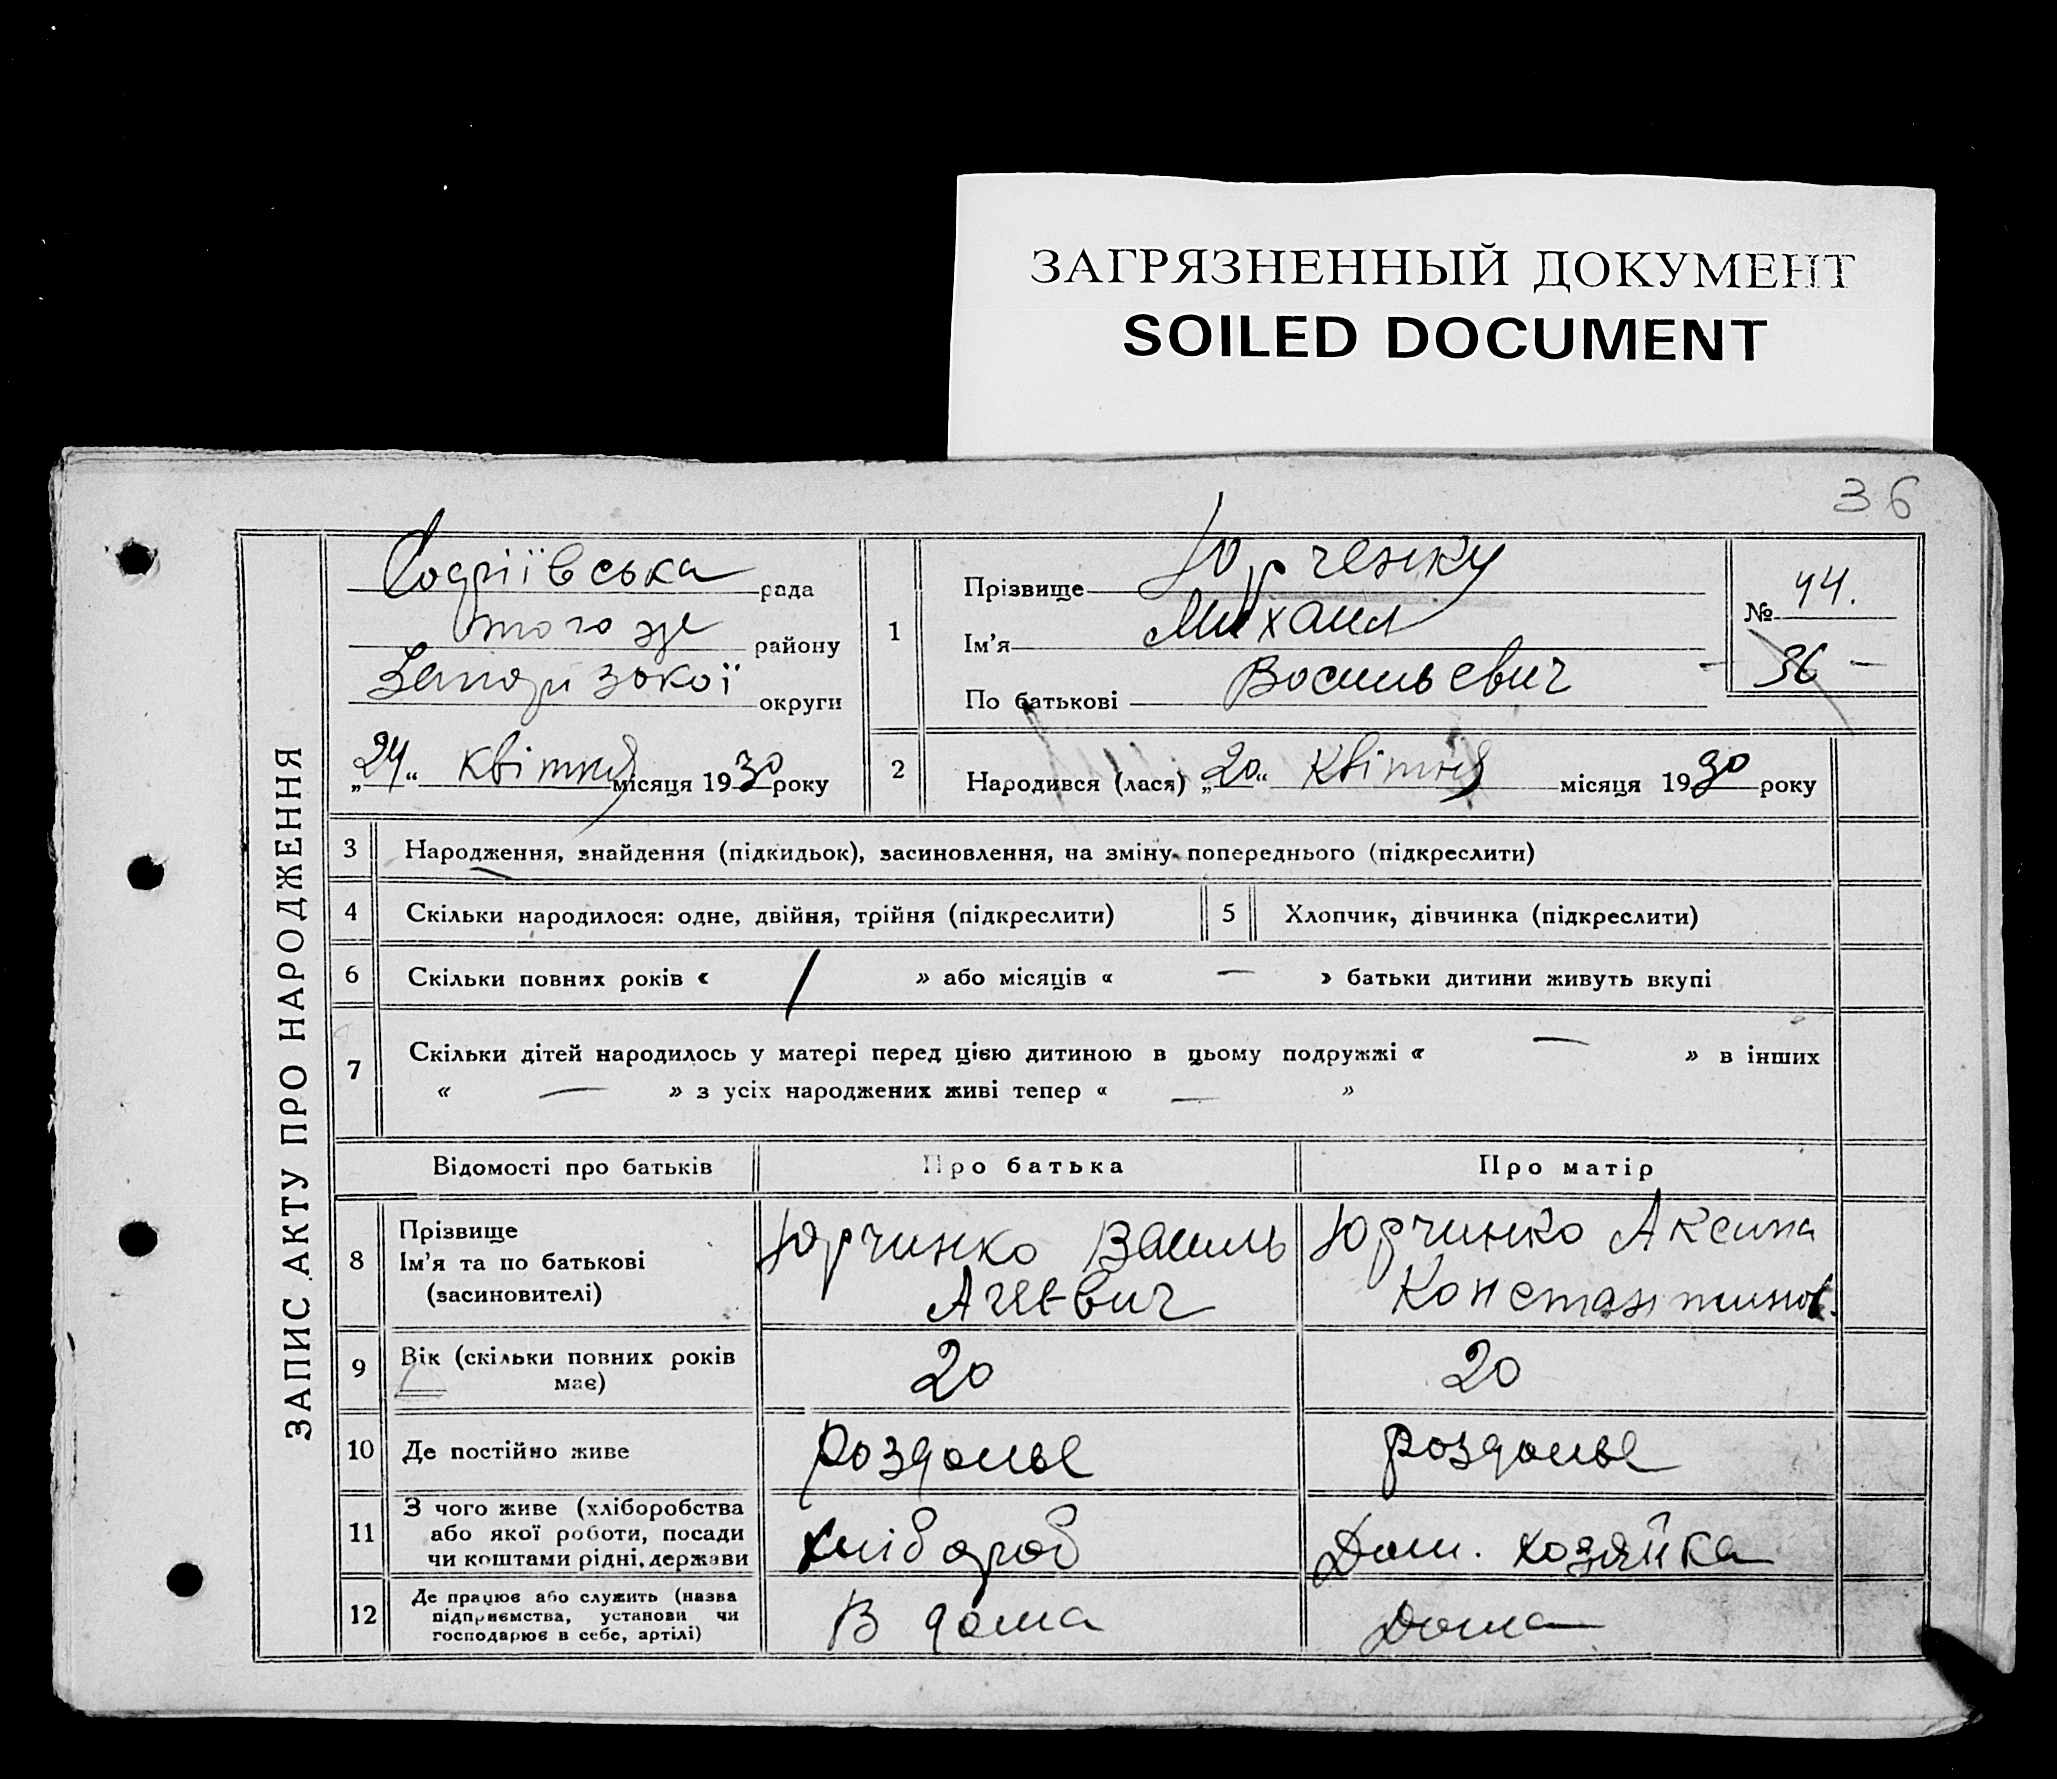 ЗАГРЯЗНЕННЫЙ ДОКУМЕНТ
SOILED DOCUMENT
36
ЗАПИС АКТУ ПРО НАРОДЖЕННЯ
Софіївська рада
того же району
округи
„24“ квітня місяця 1930 року
1
Прізвище Юрченку
Ім'я Михаил
По батькові Восильевич
№ 44.
— 36 —
2 Народився (лася) „20“ квітня місяця 1930 року
3 Народження, знайдення (підкидьок), засиновлення, на зміну попереднього (підкреслити)
4 Скільки народилося: одне, двійня, трійня (підкреслити)
5 Хлопчик, дівчинка (підкреслити)
6 Скільки повних років « / » або місяців « — » батьки дитини живуть вкупі
7 Скільки дітей народилось у матері перед цією дитиною в цьому подружжі « — » в інших
« — » з усіх народжених живі тепер « — »
Відомості про батьків Про батька Про матір
8 Прізвище
Ім'я та по батькові
(засиновителі)
Юрчинко Василь
Агеевич
Юрчинко Аксина
Константинов.
9 Вік (скільки повних років
має)
20
20
10 Де постійно живе
роздолье
роздолье
11 З чого живе (хліборобства
або якої роботи, посади
чи коштами рідні, держави
хлібороб
Дом. хозяйка
12 Де працює або служить (назва
підприємства, установи чи
господарює в себе, артілі)
В дома
Дома